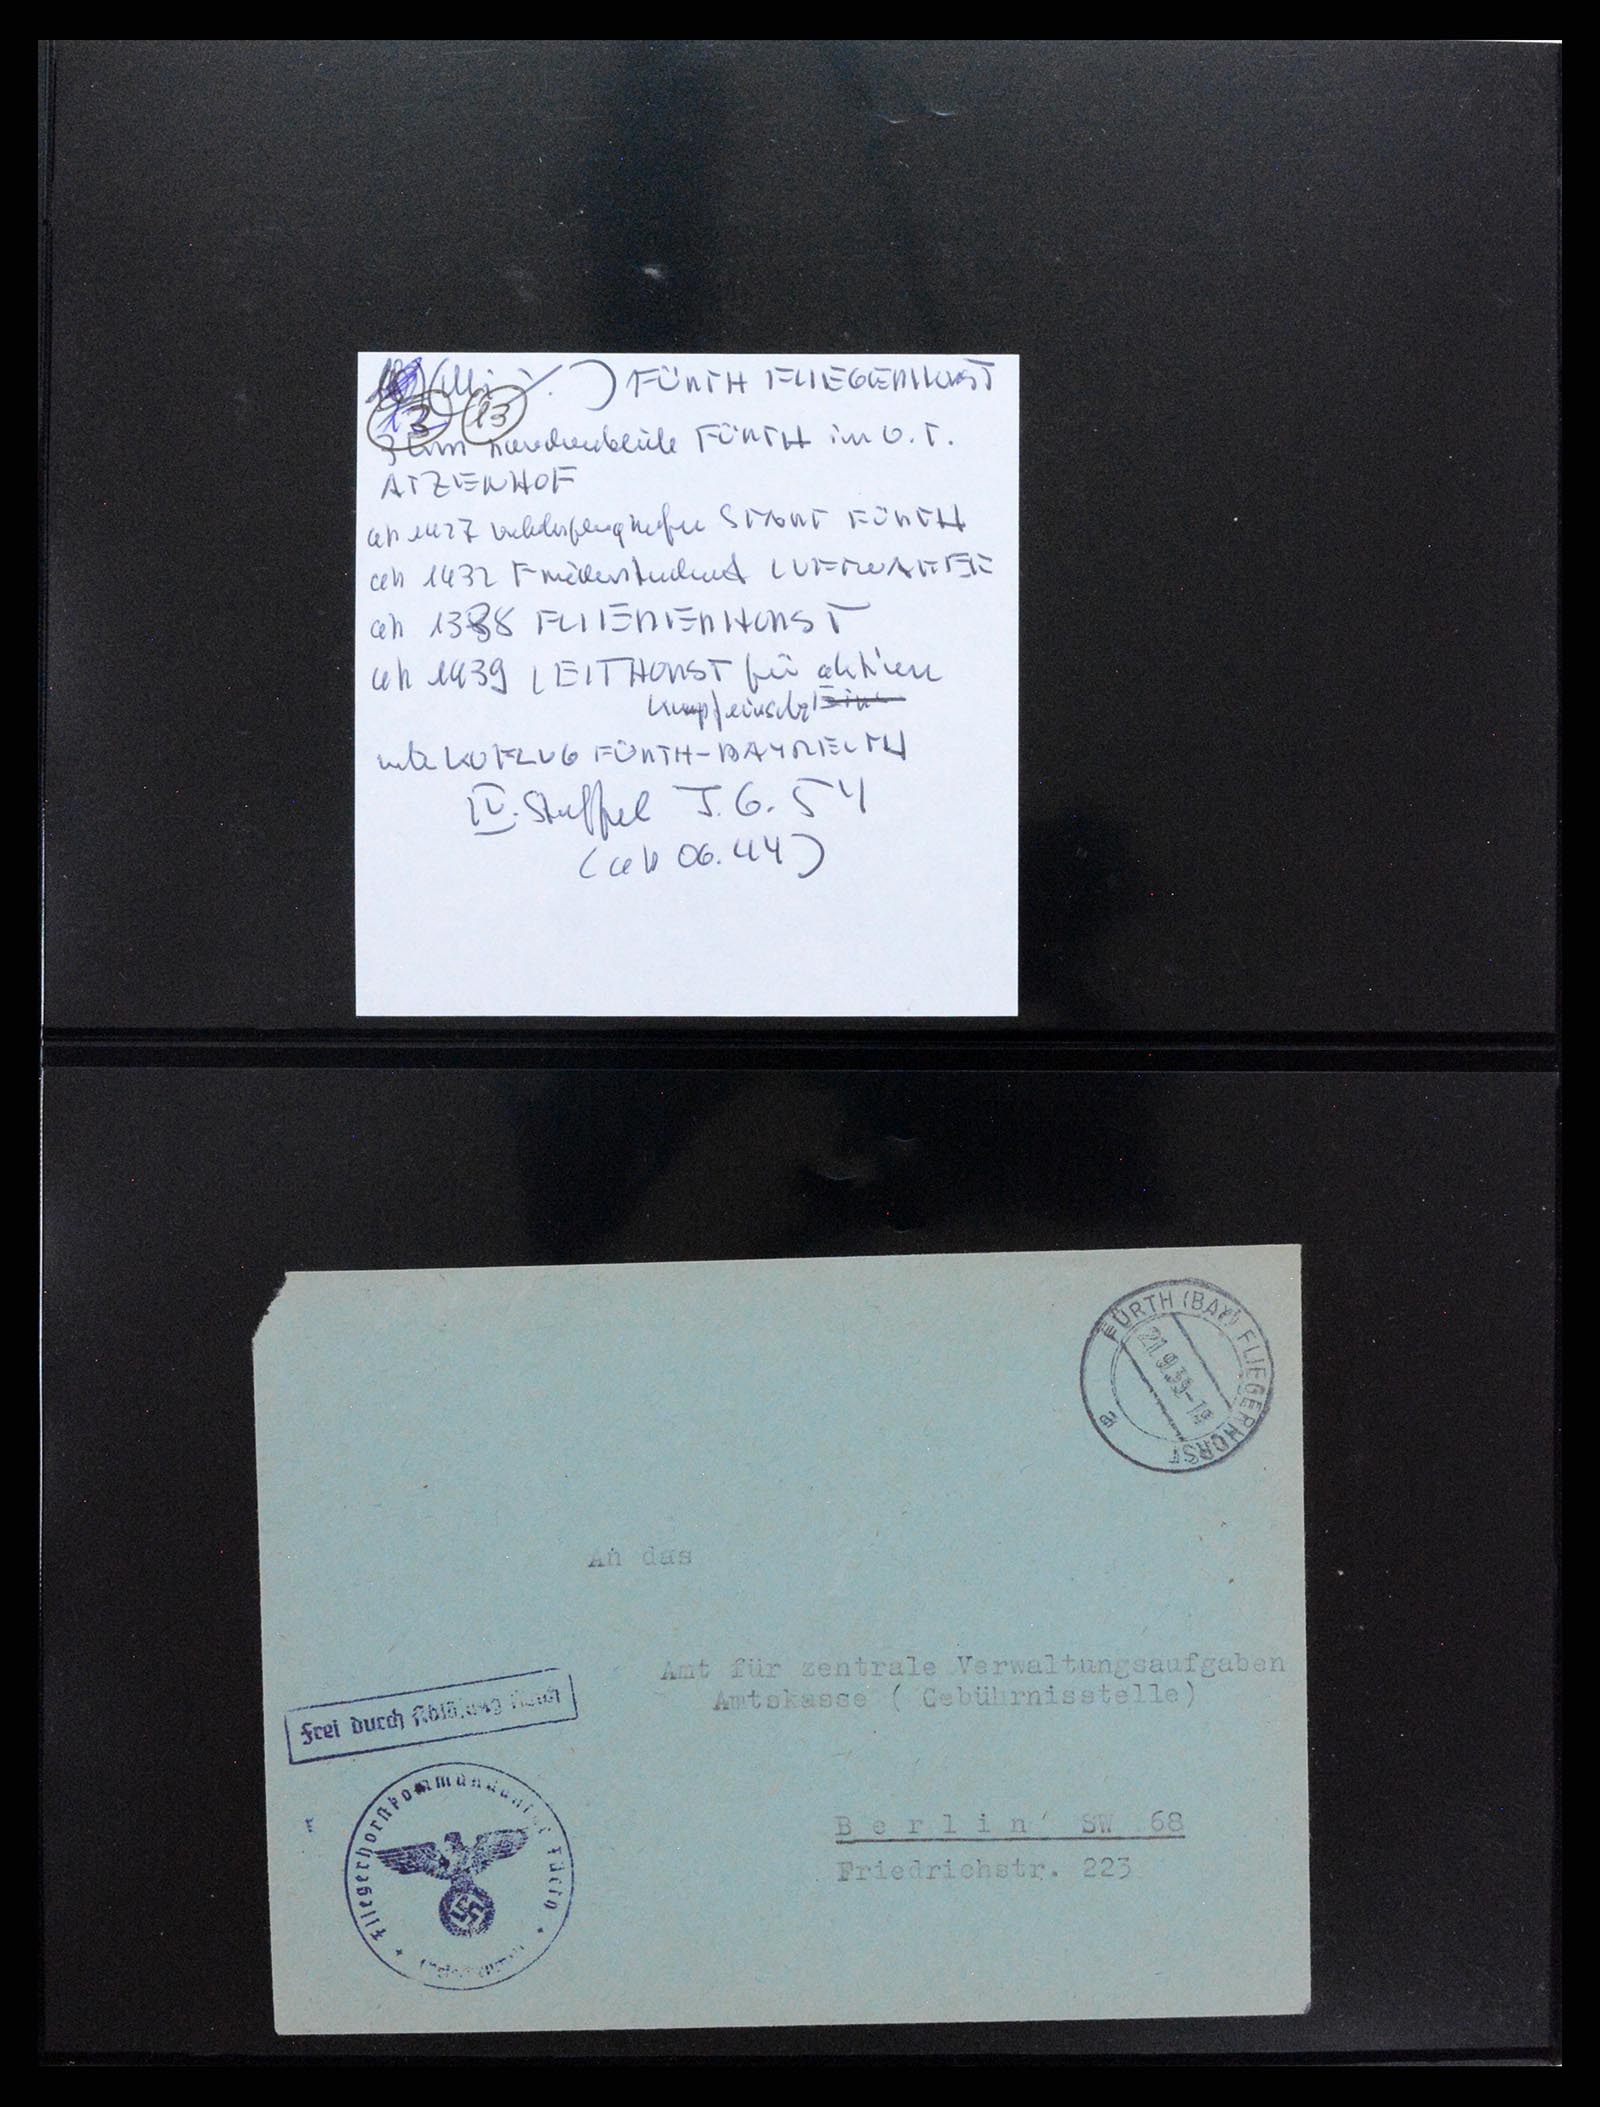 13 13 ) FÜRTH FLIEGERHORST
3 km FÜRTH im O.T.
ATZENHOF
ab 1927 STADT FÜRTH
ab 1932 LUFTWAFFE
ab 1938 FLIEGERHORST
ab 1939 LEITHORST für aktiven
Kampfeinsatz
KOFLUG FÜRTH-BAYREUTH
IV. Staffel J.G. 54
(ab 06.44)
FÜRTH (BAY) FLIEGERHORST
21.9.39-18
a
An das
Amt für zentrale Verwaltungsaufgaben
Amtskasse ( Gebührnisstelle)
Frei durch Ablösung Reich
Fliegerhorstkommandantur Fürth
Berlin SW 68
Friedrichstr. 223